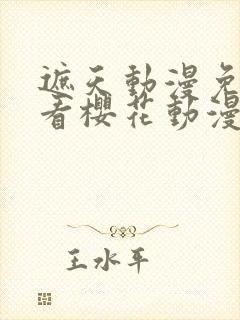 遮天動漫免
看櫻花動漫
王水平